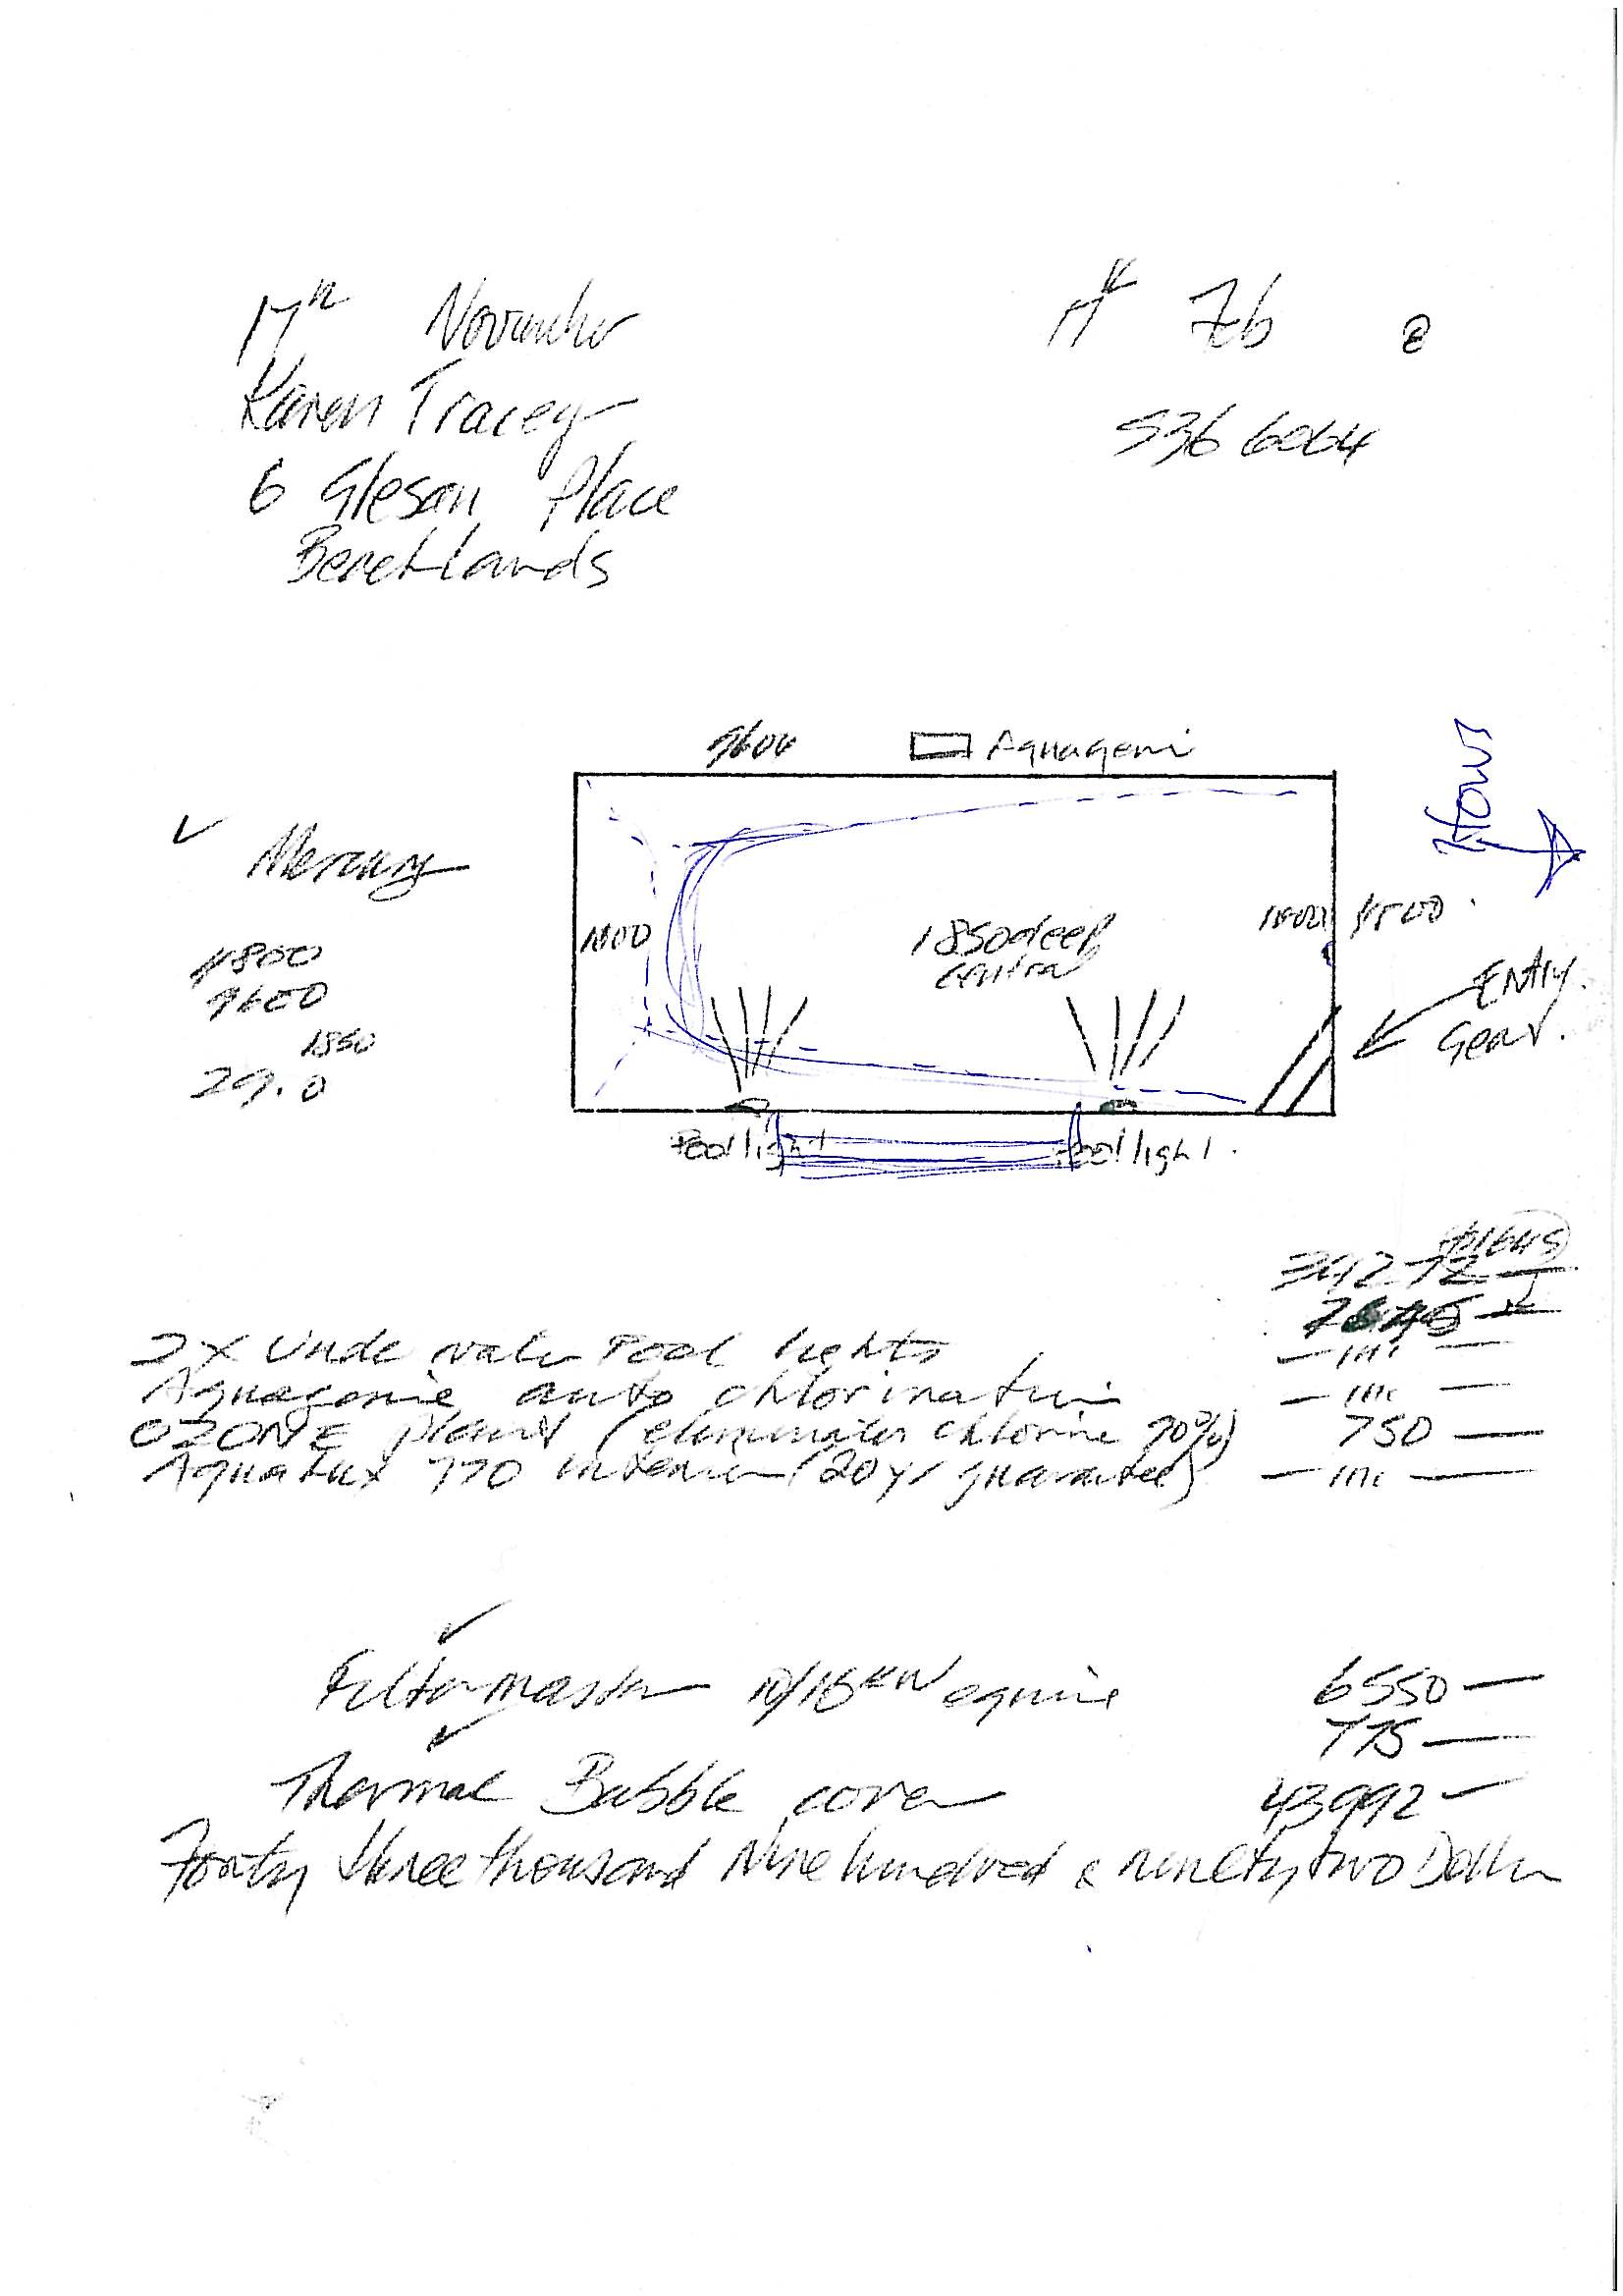 17th November
Karen Tracey
6 Gleson Place
Beachlands
76
536 6064
9600
Aquageni
House
Mercury
4800
9600
1850
29.0
1100
1850 deep
central
4500
Entry
Gear.
Pool light
Pool light.
34272
2 x Unde water Pool lights
— inc —
Aquagenie auto chlorinatin
— inc —
OZONE plant (eliminates chlorine 90%)
750 —
Aqualux 770 interior (20 yr guarantee)
— inc —
Filtermaster 10/16 KW equine
6550 —
775 —
Thermal Bubble cover
43992 —
Forty three thousand Nine hundred & ninety two Dollar